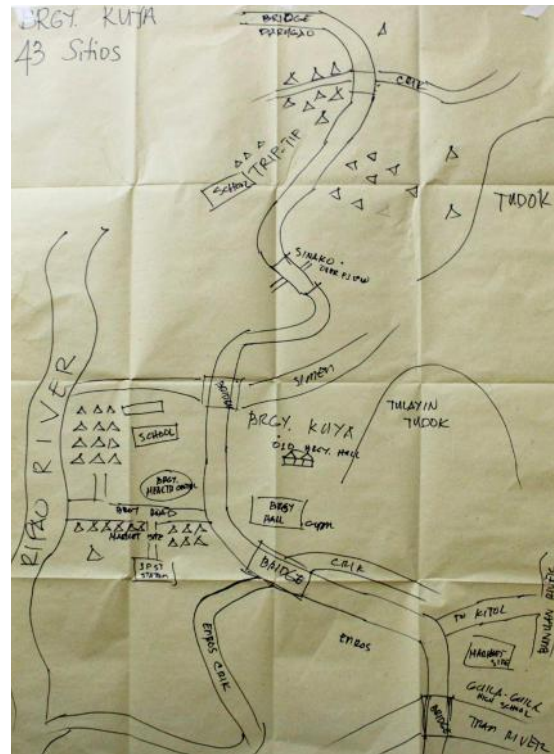 BRGY. KUYA
43 Sitios
BRIDGE
PARUGAO
CRIK
TRIP-TIP
SCHOOL
TUDOK
SINAKO
OVERFLOW
RIPAO RIVER
BRIDGE
SIMEM
BRGY. KUYA
OLD BRGY. HALL
TULAYIN
TUDOK
SCHOOL
BRGY.
HEALTH CENTER
BRGY
HALL
Gym
BRGY ROAD
MARKET SITE
STATION
BRIDGE
CRIK
EMROS CRIK
EMROS
TO KITOL
MARKET
SIDE
GUILA-GUILA
HIGH SCHOOL
BRIDGE
TRAN RIVER